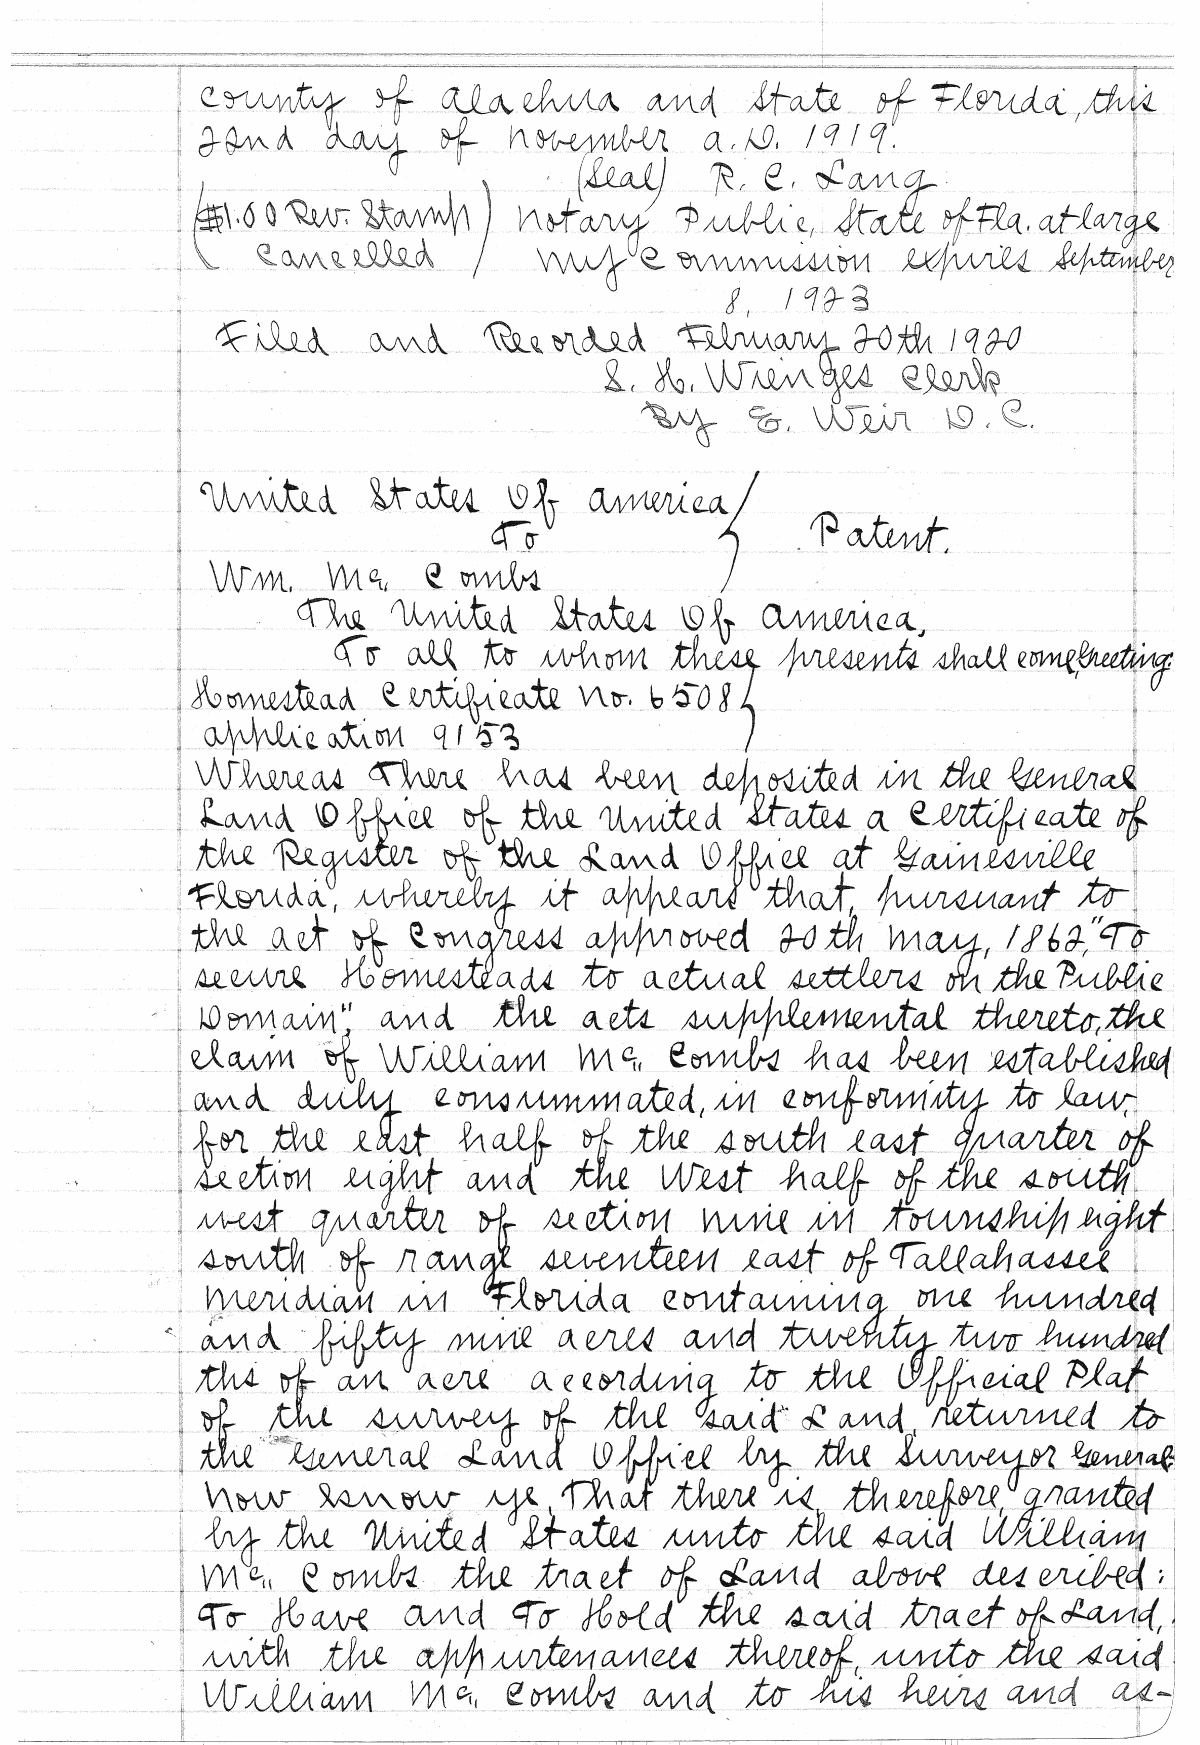 County of Alachua and State of Florida, this
22nd day of November A.D. 1919.
(Seal) R. C. Lang
($1.00 Rev. Stamp) Notary Public, State of Fla. at large
( Cancelled ) My Commission expires September
8, 1923
Filed and Recorded February 20th 1920
S. H. Wienges Clerk
By E. Weir D.C.
United States Of America
To
Patent.
Wm. Mc. Combs
The United States Of America,
To all to whom these presents shall come, Greeting:
Homestead Certificate No. 6508
Application 9153
Whereas There has been deposited in the General
Land Office of the United States a Certificate of
the Register of the Land Office at Gainesville
Florida, whereby it appears that, pursuant to
the act of Congress approved 20th May, 1862, "To
secure Homesteads to actual settlers on the Public
Domain", and the acts supplemental thereto, the
claim of William Mc. Combs has been established
and duly consummated, in conformity to law,
for the east half of the south east quarter of
section eight and the West half of the south
west quarter of section nine in township eight
south of range seventeen east of Tallahassee
Meridian in Florida containing one hundred
and fifty nine acres and twenty two hundred
ths of an acre according to the Official Plat
of the survey of the said Land, returned to
the General Land Office by the Surveyor General:
Now know ye, That there is, therefore, granted
by the United States unto the said William
Mc. Combs the tract of Land above described:
To Have and To Hold the said tract of Land,
with the appurtenances thereof, unto the said
William Mc. Combs and to his heirs and as-